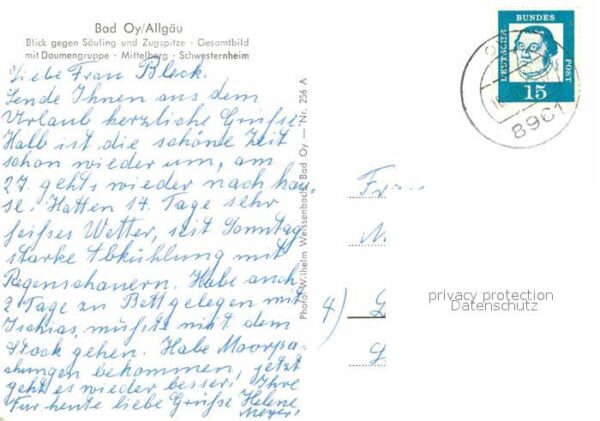 Bad Oy/Allgäu
Blick gegen Säuling und Zugspitze · Gesamtbild
mit Daumengruppe · Mittelberg · Schwesternheim
Liebe Frau Bleck.
Sende Ihnen aus dem
Urlaub herzliche Grüße
Halb ist die schöne Zeit
schon wieder um, am
27. gehts wieder nach hau
se. Hatten 14. Tage sehr
heißes Wetter, seit Sonntag
starke Abkühlung mit
Regenschauern. Habe auch
2 Tage zu Bett gelegen mit
Ischias, mußte mit dem
Stock gehen. Habe Moorpa-
ckungen bekommen, jetzt
geht es wieder besser. Ihre
Für heute liebe Grüße Helene
Meyer.
Photo Wilhelm Weissenbach, Bad Oy — Nr. 256 A
DEUTSCHE BUNDES POST
15
8961
Frau
4)
privacy protection
Datenschutz